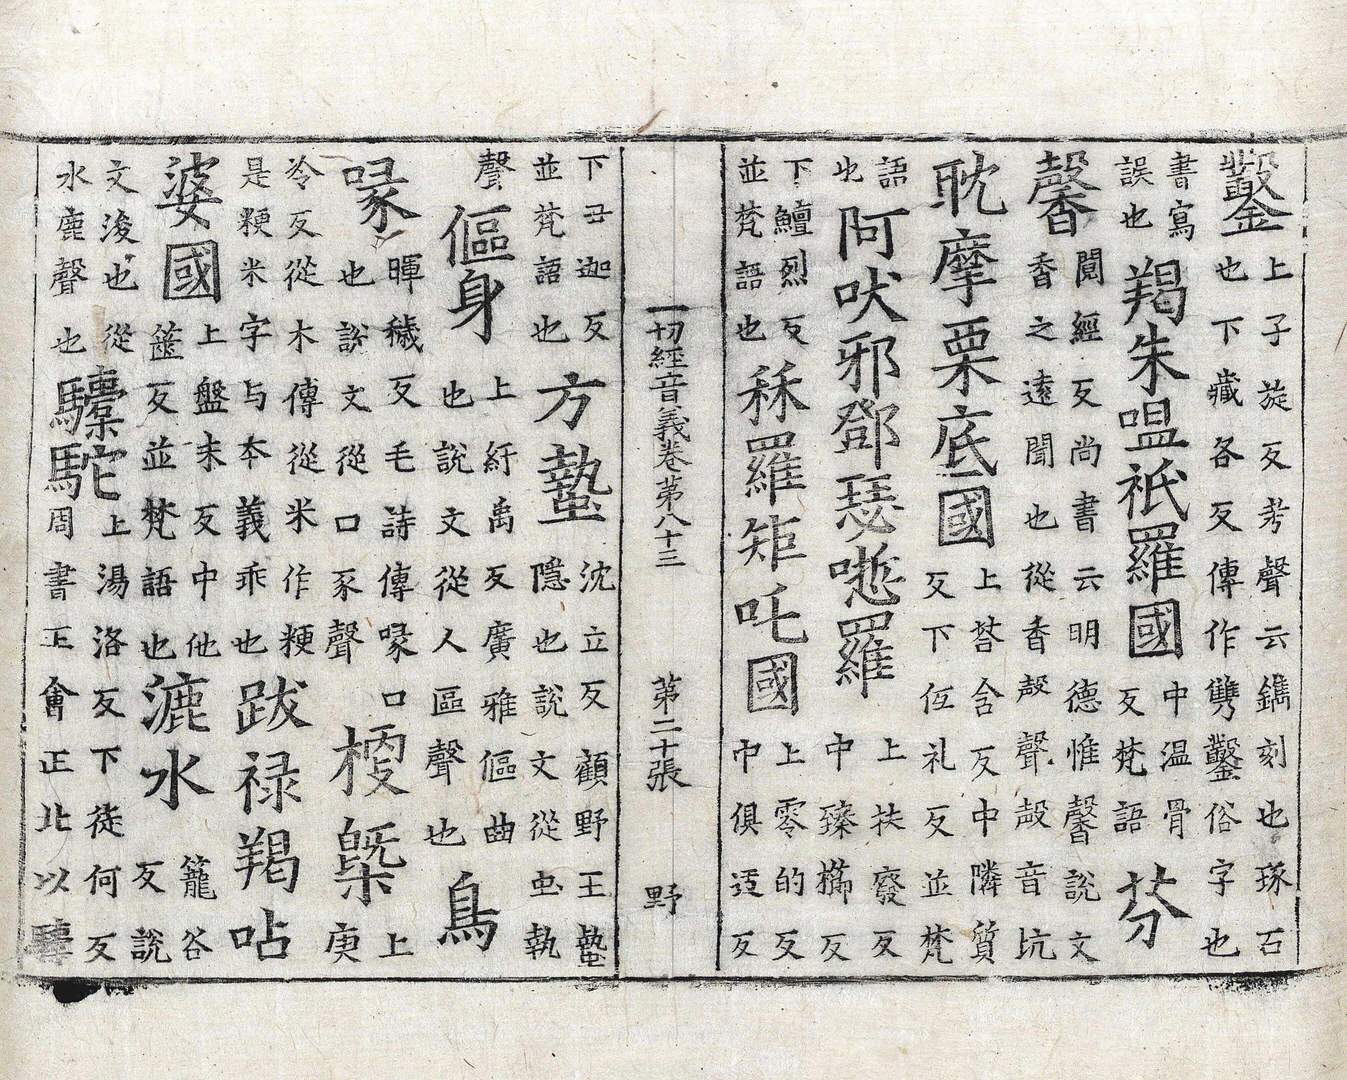 鑿上子旋反考聲云鐫刻也琢石
也下藏各反傳作鑿俗字也
書寫
誤也
羯朱嗢祇羅國中温骨
反梵語
芬
馨經反尚書云明德惟馨說文
香之遠聞也從香殸聲殸音坑
耽摩栗底國上荅含反中隣質
反下伍礼反並梵
語
也
阿吠邪鄧瑟羅上扶廢反
中臻櫛反
下鱣烈反
並梵語也
秝羅矩吒國上零的反
中俱反
一切經音義卷第八十三 第二十張 野
下丑迦反
並梵語也
方蟄沈立反顧野王蟄
隱也說文從虫執
聲
傴身上紆禹反廣雅傴曲
也說文從人區聲也
鳥
喙暉穢反毛詩傳喙口
也說文從口豕聲
梗槩上
庚
冷反從木傳從米作粳
是粳米字与本義乖也
跋禄羯呫
婆國上盤末反中他
篋反並梵語也
漉水籠谷
反說
文浚也從
水鹿聲也
驝駝上湯洛反下徒何反
周書王會正北以驝